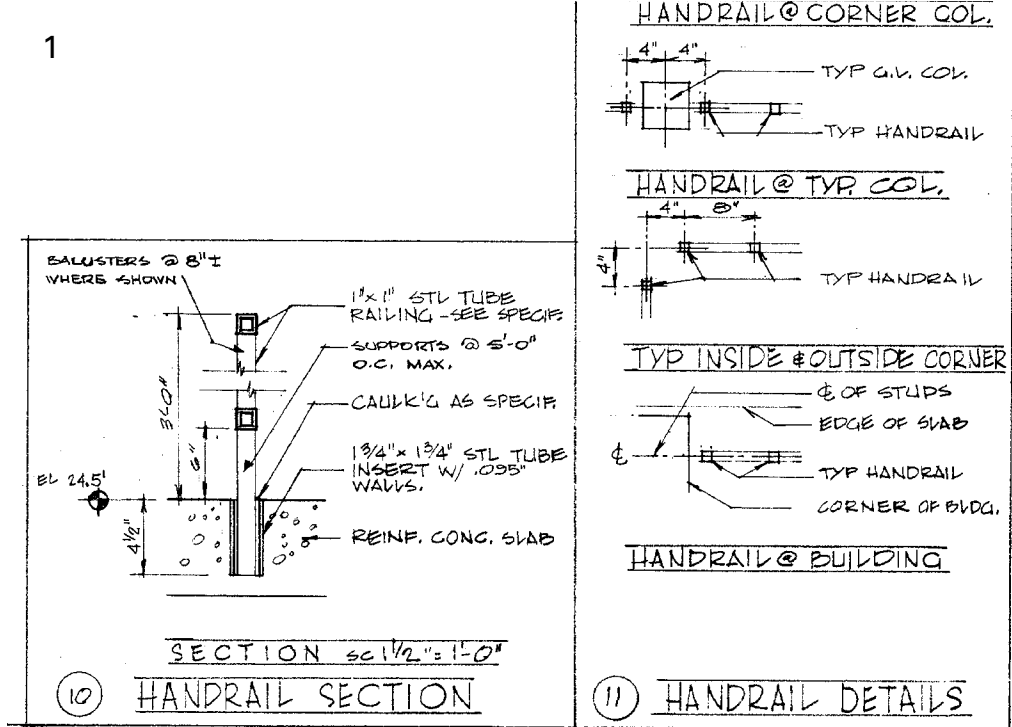 1
BALUSTERS @ 8"±
WHERE SHOWN
1"x1" STL TUBE
RAILING - SEE SPECIF.
SUPPORTS @ 5'-0"
O.C. MAX.
CAULK'G AS SPECIF.
1 3/4" x 1 3/4" STL TUBE
INSERT W/ .095"
WALLS.
REINF. CONC. SLAB
3'-0"
6"
EL 24.5'
4 1/2"
SECTION SC 1 1/2" = 1'-0"
10 HANDRAIL SECTION
HANDRAIL @ CORNER COL.
4" 4"
TYP G.L. COL.
TYP HANDRAIL
HANDRAIL @ TYP. COL.
4" 8"
4"
TYP HANDRAIL
TYP INSIDE & OUTSIDE CORNER
℄ OF STUDS
EDGE OF SLAB
℄
TYP HANDRAIL
CORNER OF BLDG.
HANDRAIL @ BUILDING
11 HANDRAIL DETAILS